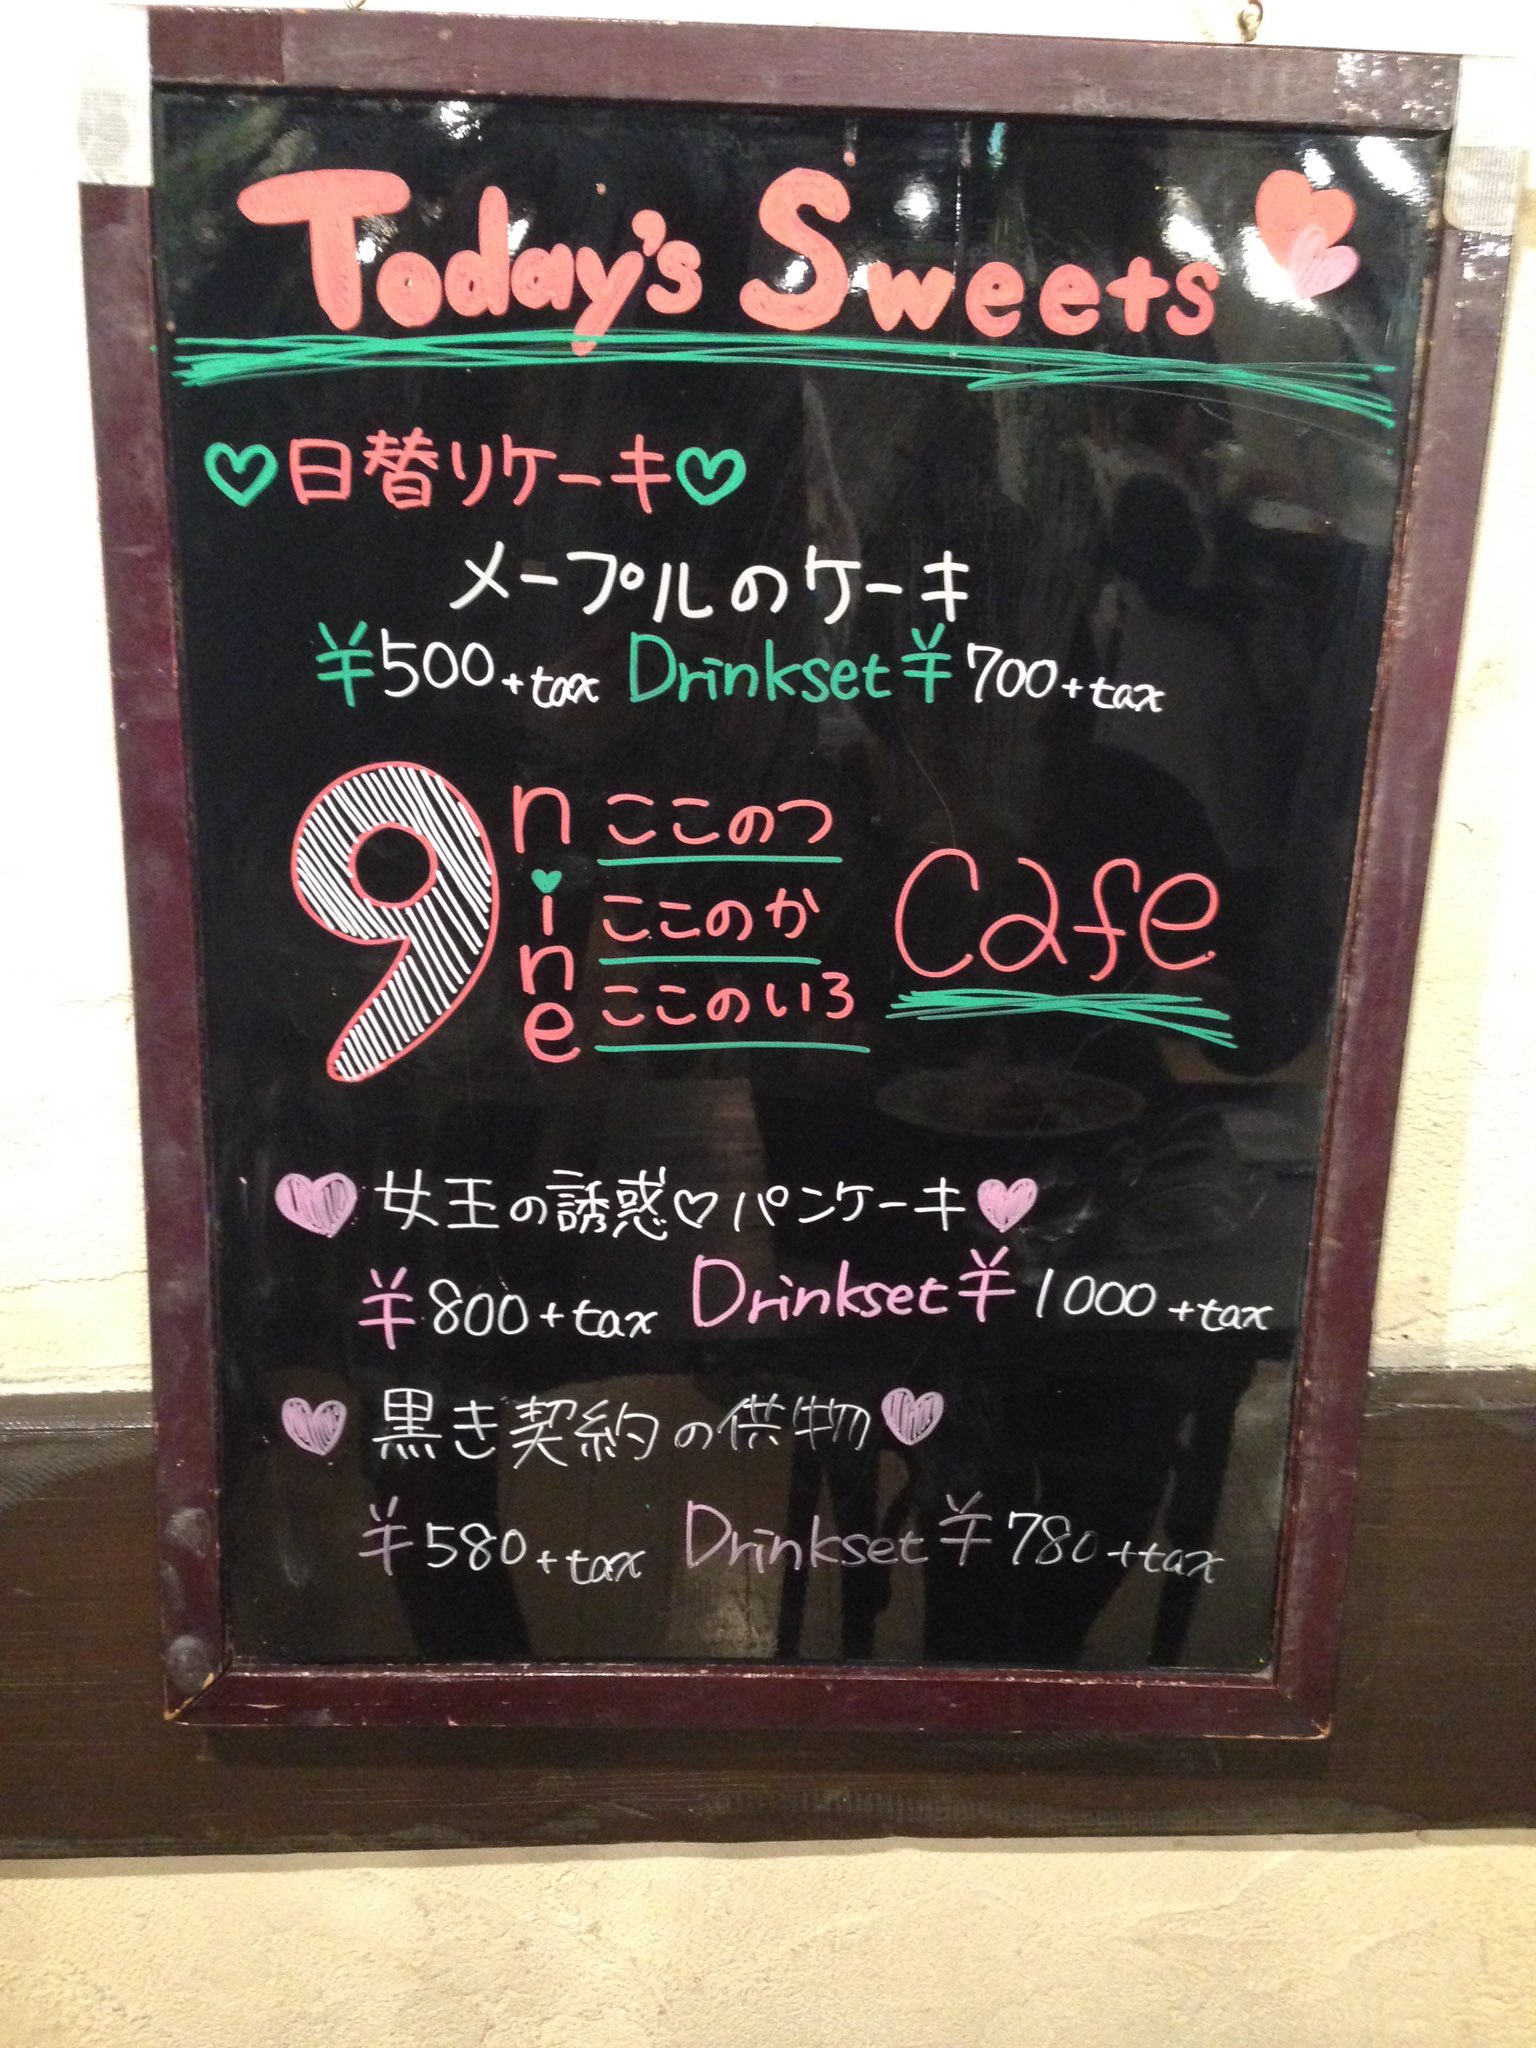 Today's Sweets
♡日替りケーキ♡
メープルのケーキ
¥500+tax Drinkset ¥700+tax
9 nine ここのつ
ここのか
ここのいろ
Cafe
♥女王の誘惑♡パンケーキ♥
¥800+tax Drinkset ¥1000+tax
♥黒き契約の供物♥
¥580+tax Drinkset ¥780+tax